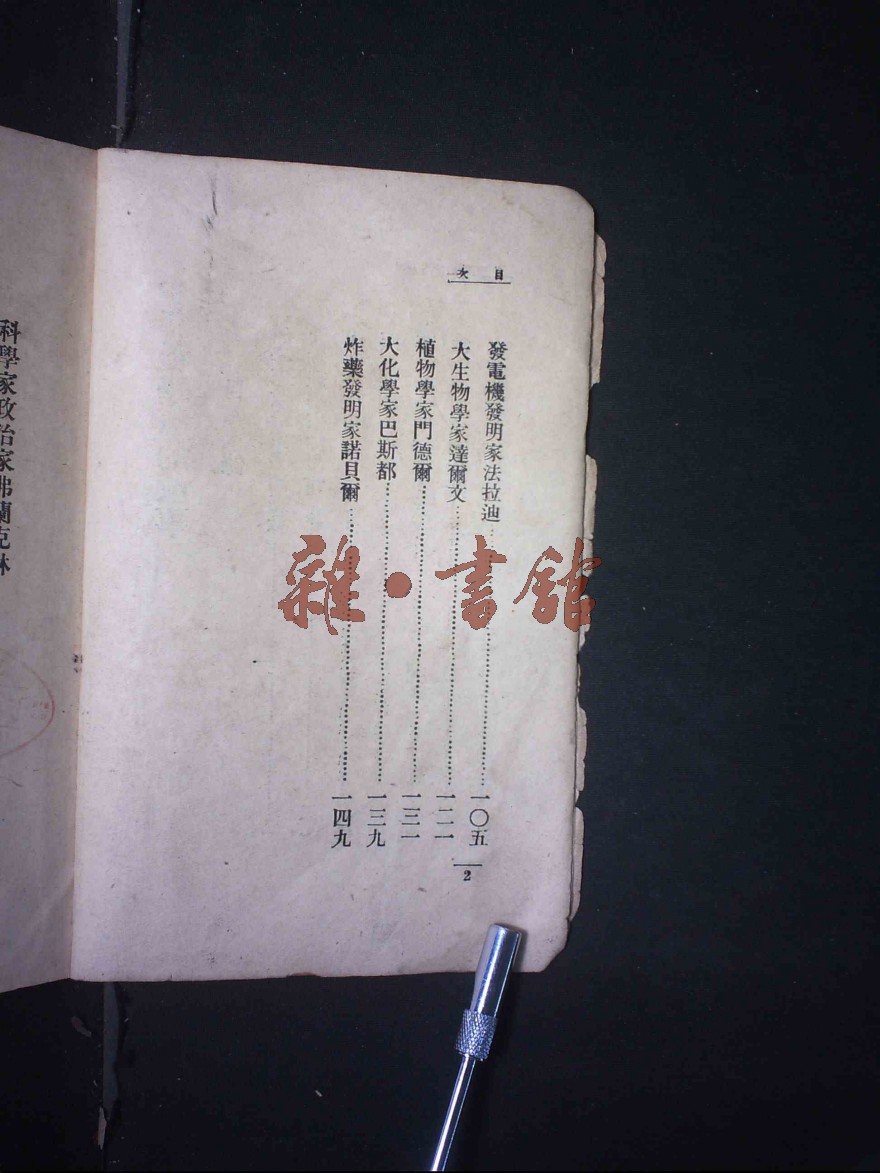 目次
發電機發明家法拉迪……一〇五
大生物學家達爾文……一二一
植物學家門德爾……一三一
大化學家巴斯都……一三九
炸藥發明家諾貝爾……一四九
2
科學家政治家弗蘭克林
雜·書館